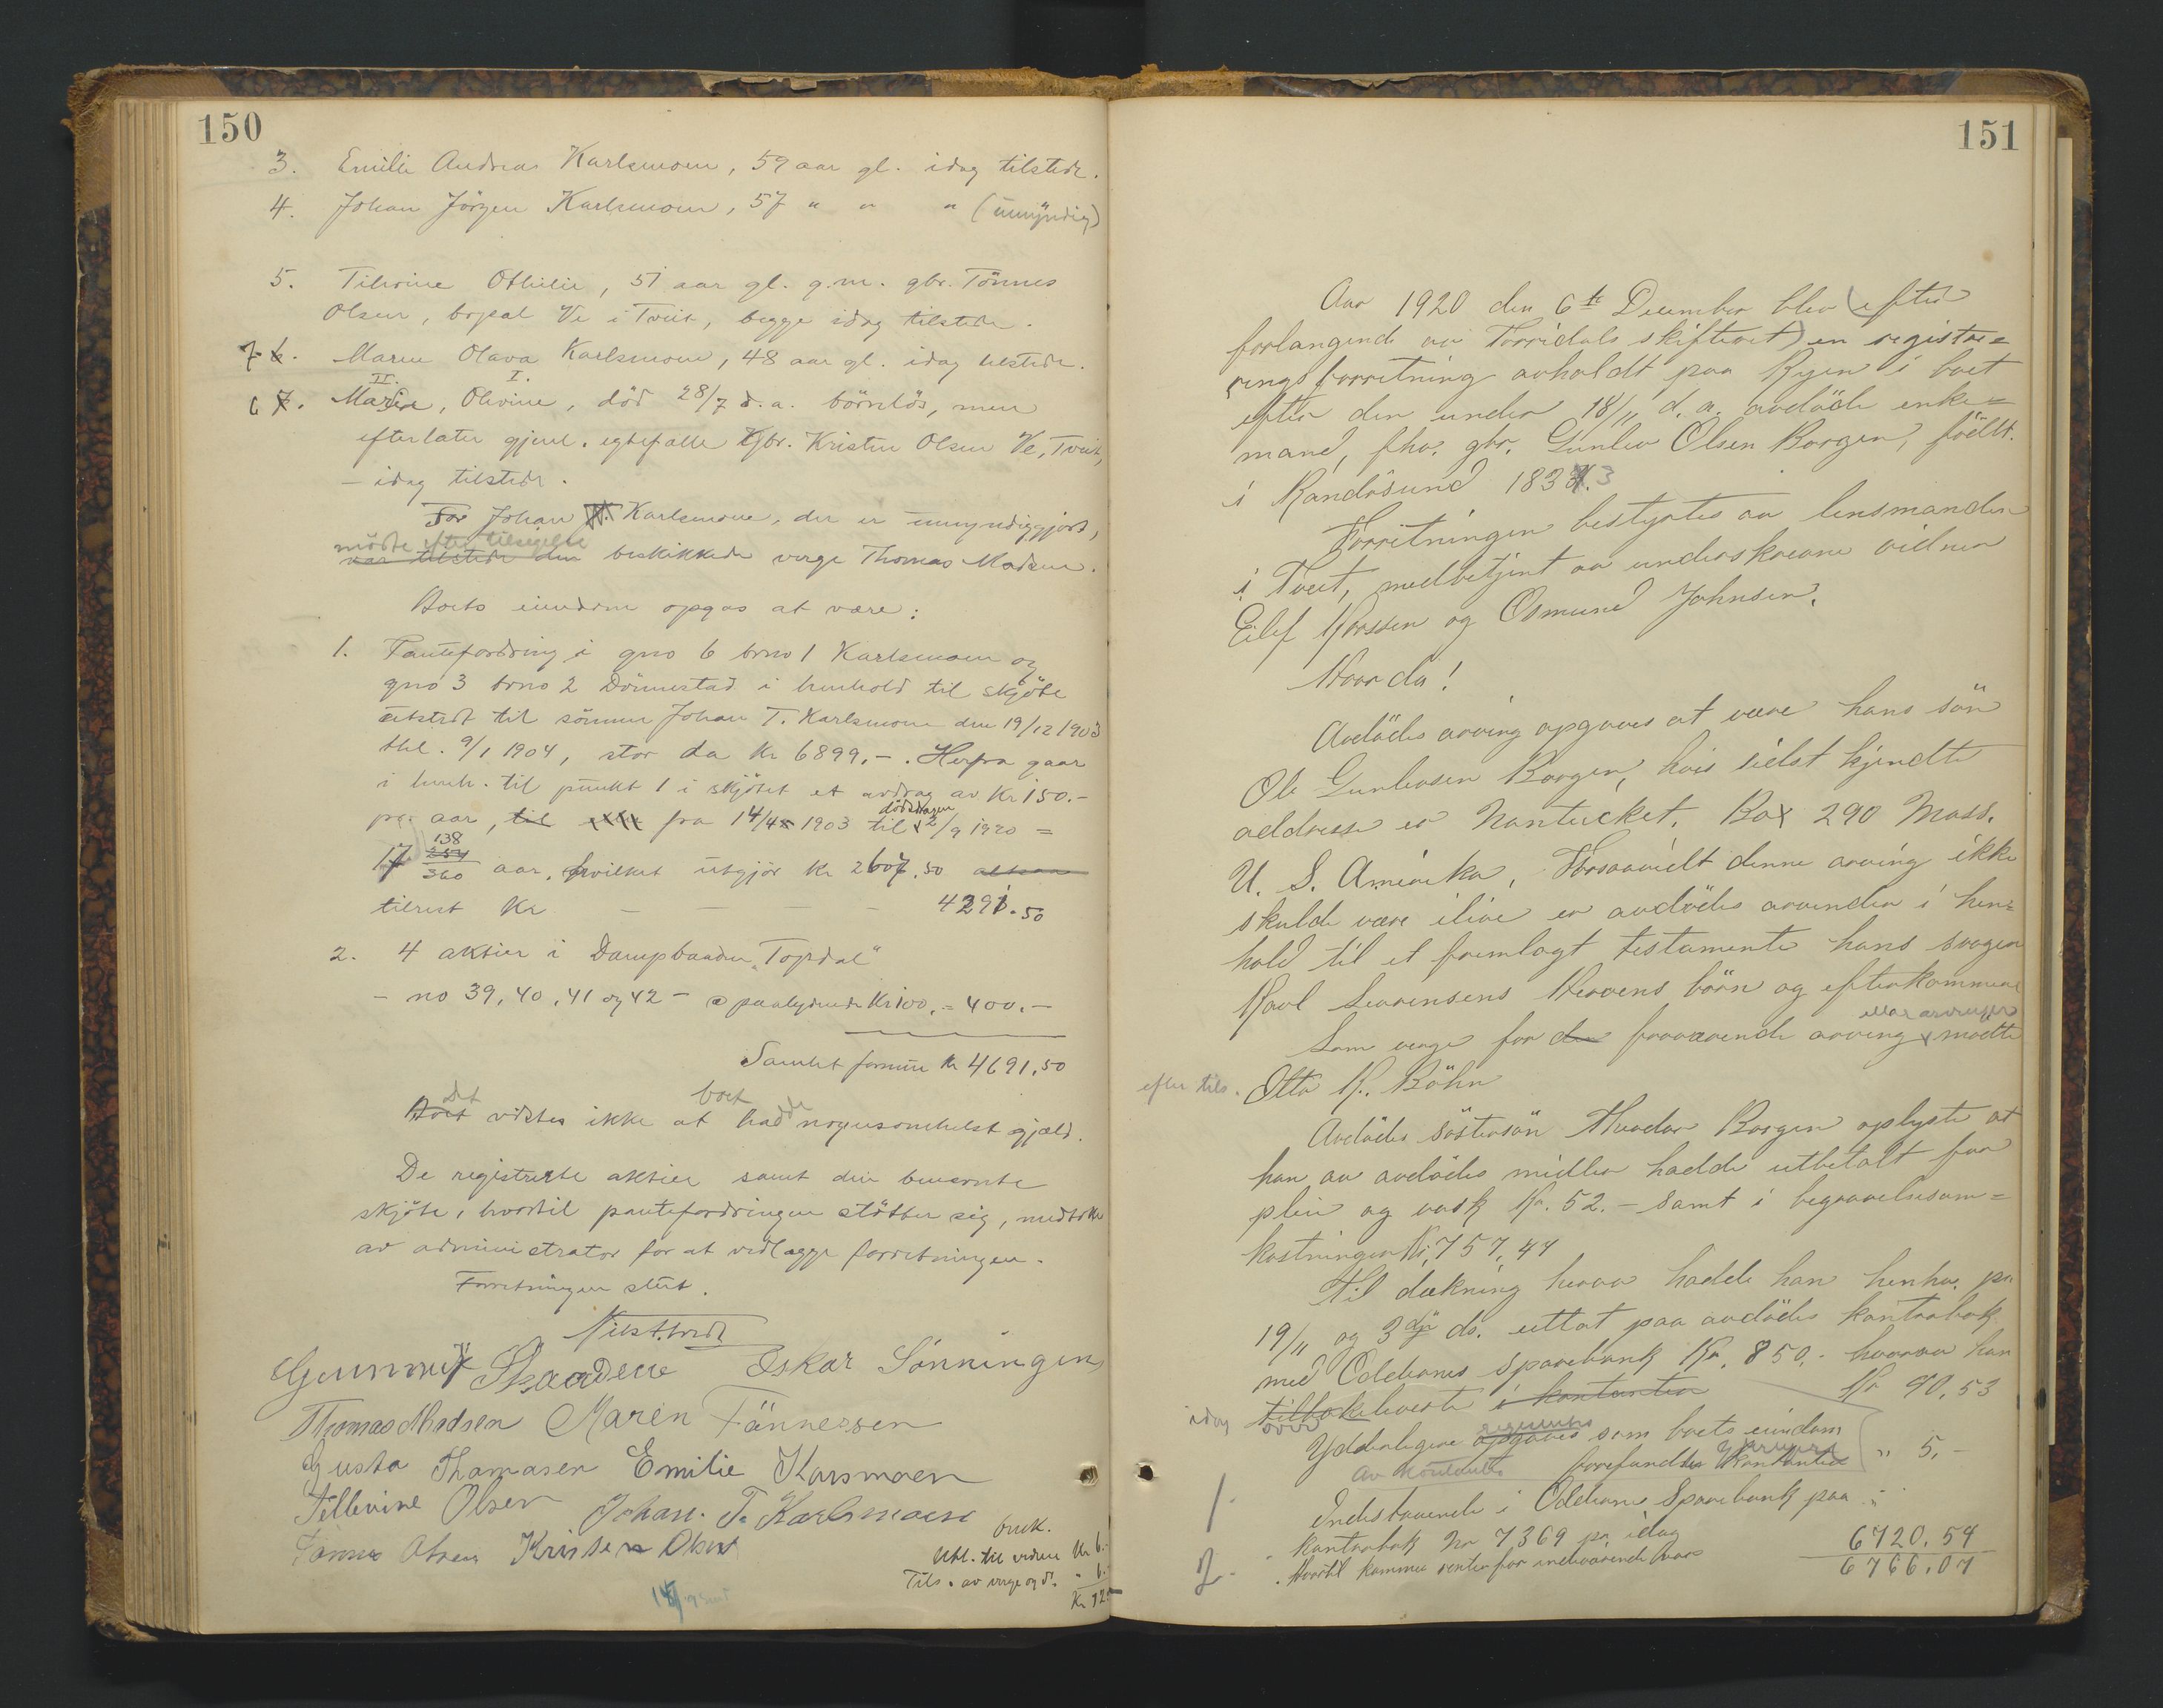 150
3. Emilie Andreas Karlsmoen, 59 aar gl. idag tilstede.
4. Johan Jörgen Karlsmoen, 57 " " " (umyndig)
5. Tilvine Othilie, 51 aar gl. g.m. gbr. Tönnes
Olsen, bopæl Ve i Tveit, begge idag tilstede.
7 6. Maren Olava Karlsmoen, 48 aar gl. idag tilstede.
II. I.
6 7. Marie, Olivine, död 28/7 d.a. börnlös, men
efterlater gjenl. egtefælle Gbr. Kristen Olsen Ve, Tveit,
– idag tilstede.
For Johan T. Karlsmoen, der er umyndiggjort,
mödte efter tilsigelse
var tilstede den beskikkede verge Thomas Madsen.
Boets eiendom opgas at være:
1. Pantefordring i gno 6 brno 1 Karlsmoen og
gno 3 brno 2 Dönnestad i henhold til skjöte
utstedt til sönnen Johan T. Karlsmoen den 19/12 1903
thl. 9/1 1904, stor da Kr 6899,–. Herfra gaar
i henh. til punkt 1 i skjötet et avdrag av Kr 150.–
dödsdagen
pr. aar, til fra 14/4 1903 til 2/9 1920 =
138
17 254/360 aar, hvilket utgjör Kr 2607.50
tilrest Kr – – – – 4291.50
2. 4 aktier i Dampbaaden "Topdal"
– no 39, 40, 41 og 42 – @ paalydende Kr 100,– = 400.–
Samlet formue Kr 4691,50
Det boet de
Boet vistes ikke at had nogensomhelst gjæld.
De registrerte aktier samt den benævnte
skjöte, hvortil pantefordringen stötter sig, medtokes
av administrator for at vedlægge forretningen.
Forretningen slut.
Gunnuf Skaadene Oskar Sønningen
Thomas Madsen Maren Tännessen
Gusta Thomasen Emilie Karsmoen
Tillevine Olsen Johan. T. Karlsmoen
Tønnes Olsen Kristen Olsen
Utl. til vidner Kr 6.–
Tils. av verge og d. " 6.–
Kr 12.–
151
Aar 1920 den 6te December blev (efter
forlangende av Torridals skifteret) en registre=
ringsforretning avholdt paa Ryen i boet
efter den under 18/11 d. a. avdöde enke=
mand, fhv. gbr. Gunlev Olsen Borgen, födt
i Randösund 1834. 3
Forretningen bestyrtes av lensmanden
i Tveit, medbetjent av underskrevne vidner
Eilef Kørssen og Osmund Johnsen.
Hvorda!
Avdödes arving opgaves at være hans sön
Ole Gunlevsen Borgen, hvis sidst kjendte
addresse er Nantucket, Box 290 Mass.
U. S. Amerika. Forsaavidt denne arving ikke
skulde være ilive er avdödes arvinger i hen=
hold til et fremlagt testamente hans svoger
Karl Severinsens Herøens børn og efterkommere
eller arvinger
Som verge for den fraværende arving mødte
efter tils. Otto K. Böhn
Avdödes söstersön Theodor Borgen oplyste at
han av avdödes midler hadde utbetalt for
pleie og vask Kr. 52.– samt i begravelsesom=
kostninger Kr 757,47
Til dækning herav hadde han henhv. pr.
19/11 og 3die ds. uttat paa avdödes kontrabok
med Oddernes Sparebank Kr. 850,– hvorav han
idag tilbakeleverte i kontanter Kr 90,53
over registreres
Yderligere opgaves som boets eiendom
Av kontanter forefandtes kontanter " 5,–
1. Indestaaende i Oddernes Sparebank paa
kontrabok nr 7369 pr. idag 6720.54
2. Hvortil kommer renter for indeværende aar
6766.07